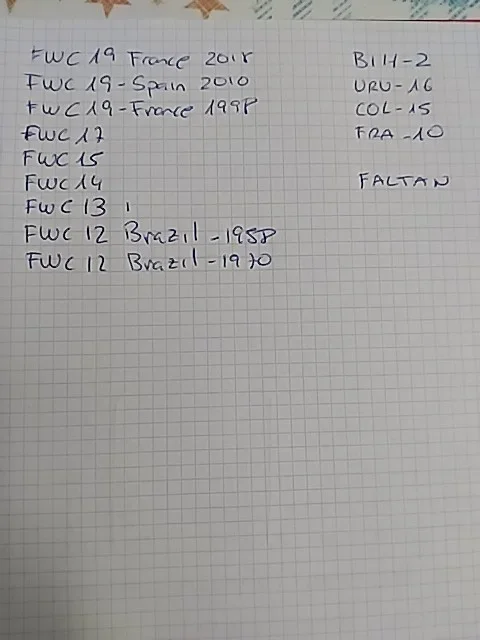 FWC 19 France 2018
FWC 19-Spain 2010
FWC 19-France 1998
FWC 17
FWC 15
FWC 14
FWC 13
FWC 12 Brazil-1958
FWC 12 Brazil-1970
BIH-2
URU-16
COL-15
FRA-10
FALTAN